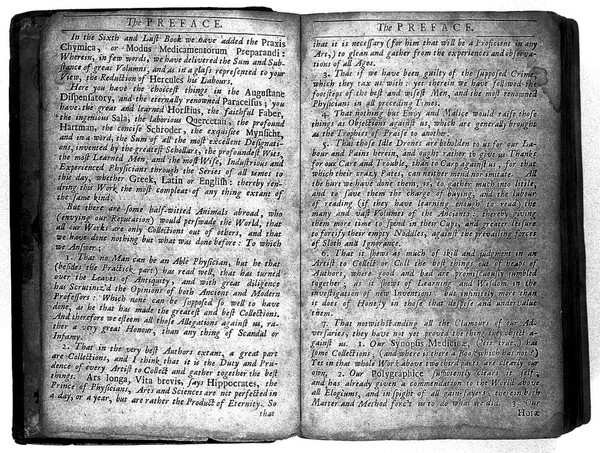 The PREFACE.
In the Sixth and Last Book we have added the Praxis
Chymica, or Modus Medicamentorum Preparandi:
Wherein, in few words, we have delivered the Sum and Sub-
stance of great Volumns, and as in a glass represented to your
View, the Reduction of Hercules his Labours.
Here you have the choicest things in the Augustane
Dispensatory, and the eternally renowned Paracelsus; you
have the great and learned Horstius, the faithful Faber,
the ingenious Sala, the laborious Quercetan, the profound
Hartman, the concise Schroder, the exquisite Mynsicht,
and in a word, the Sum of all the most excellent Designati-
ons, invented by the greatest Schollars, the profoundest Wits,
the most Learned Men, and the most Wise, Industrious and
Experienced Physicians through the Series of all times to
this day, whether Greek, Latin or English: thereby ren-
dring this Work the most compleat of any thing extant of
the same kind.
But there are some half-witted Animals abroad, who
(envying our Reputation) would perswade the World, that
all our Works are only Collections out of others, and that
we have done nothing but what was done before: To which
we Answer,
1. That no Man can be an Able Physician, but he that
(besides the Practick part) has read well, that has turned
over the Leaves of Antiquity; and with great diligence
has Scrutiniz'd the Opinions of both Ancient and Modern
Professors: Which none can be supposed so well to have
done, as he that has made the greatest and best Collections.
And therefore we esteem all those Allegations against us, ra-
ther a very great Honour, than any thing of Scandal or
Infamy.
2. That in the very best Authors extant, a great part
are Collections, and I think that it is the Duty and Pru-
dence of every Artist to Collect and gather together the best
things. Ars longa, Vita brevis, says Hippocrates, the
Prince of Physicians, Arts and Sciences are not perfected in
a day, or a year, but are rather the Product of Eternity. So
that
The PREFACE.
that it is necessary (for him that will be a Proficient in any
Art,) to glean and gather from the experiences and observa-
tions of all Ages.
3. That if we have been guilty of the supposed Crime,
which they tax us with: yet therein we have followed the
footsteps of the best and wisest Men, and the most renowned
Physicians in all preceding Times.
4. That nothing but Envy and Malice would raise those
things as Objections against us, which are generally brought
as the Trophies of Praise to another.
5. That those Idle Drones are beholden to us for our La-
bour and Pains herein, and ought rather to give us Thanks
for our Care and Trouble, than to Carp against us, for that
which their crazy Pates, can neither mend nor imitate. All
the hurt we have done them, is, to gather much into little,
and to save them the charge of buying, and the labour
of reading (if they have learning enough to read) the
many and vast Volumes of the Ancients: thereby giving
them more time to spend in their Cups, and greater leisure
to fortify their empty Noddles, against the prevailing forces
of Sloth and Ignorance.
6. That it shews as much of skill and judgment in an
Artist to Collect or Cull the best things out of heap of
Authors, where good and bad are promiscuously jumbled
together; as it shews of Learning and Wisdom in the
investigation of new Inventions: but infinitely more than
it does of Honesty in those that asperse and undervalue
them.
7. That notwithstanding all the Clamours of our Ad-
versaries, they have not yet proved the thing they object a-
gainst us. 1. Our Synopsis Medicinæ, ('tis true) has
some Collections, (and where is there a Book which has not?)
Yet in that whole Work above two third parts are clearly our
own. 2. Our Polygraphice sufficiently clears it self,
and has already given a commendation to the World above
all Elogiums, and in spight of all gain-sayers, wherein both
Matter and Method forc't us to do what we did. 3. Our
Horæ